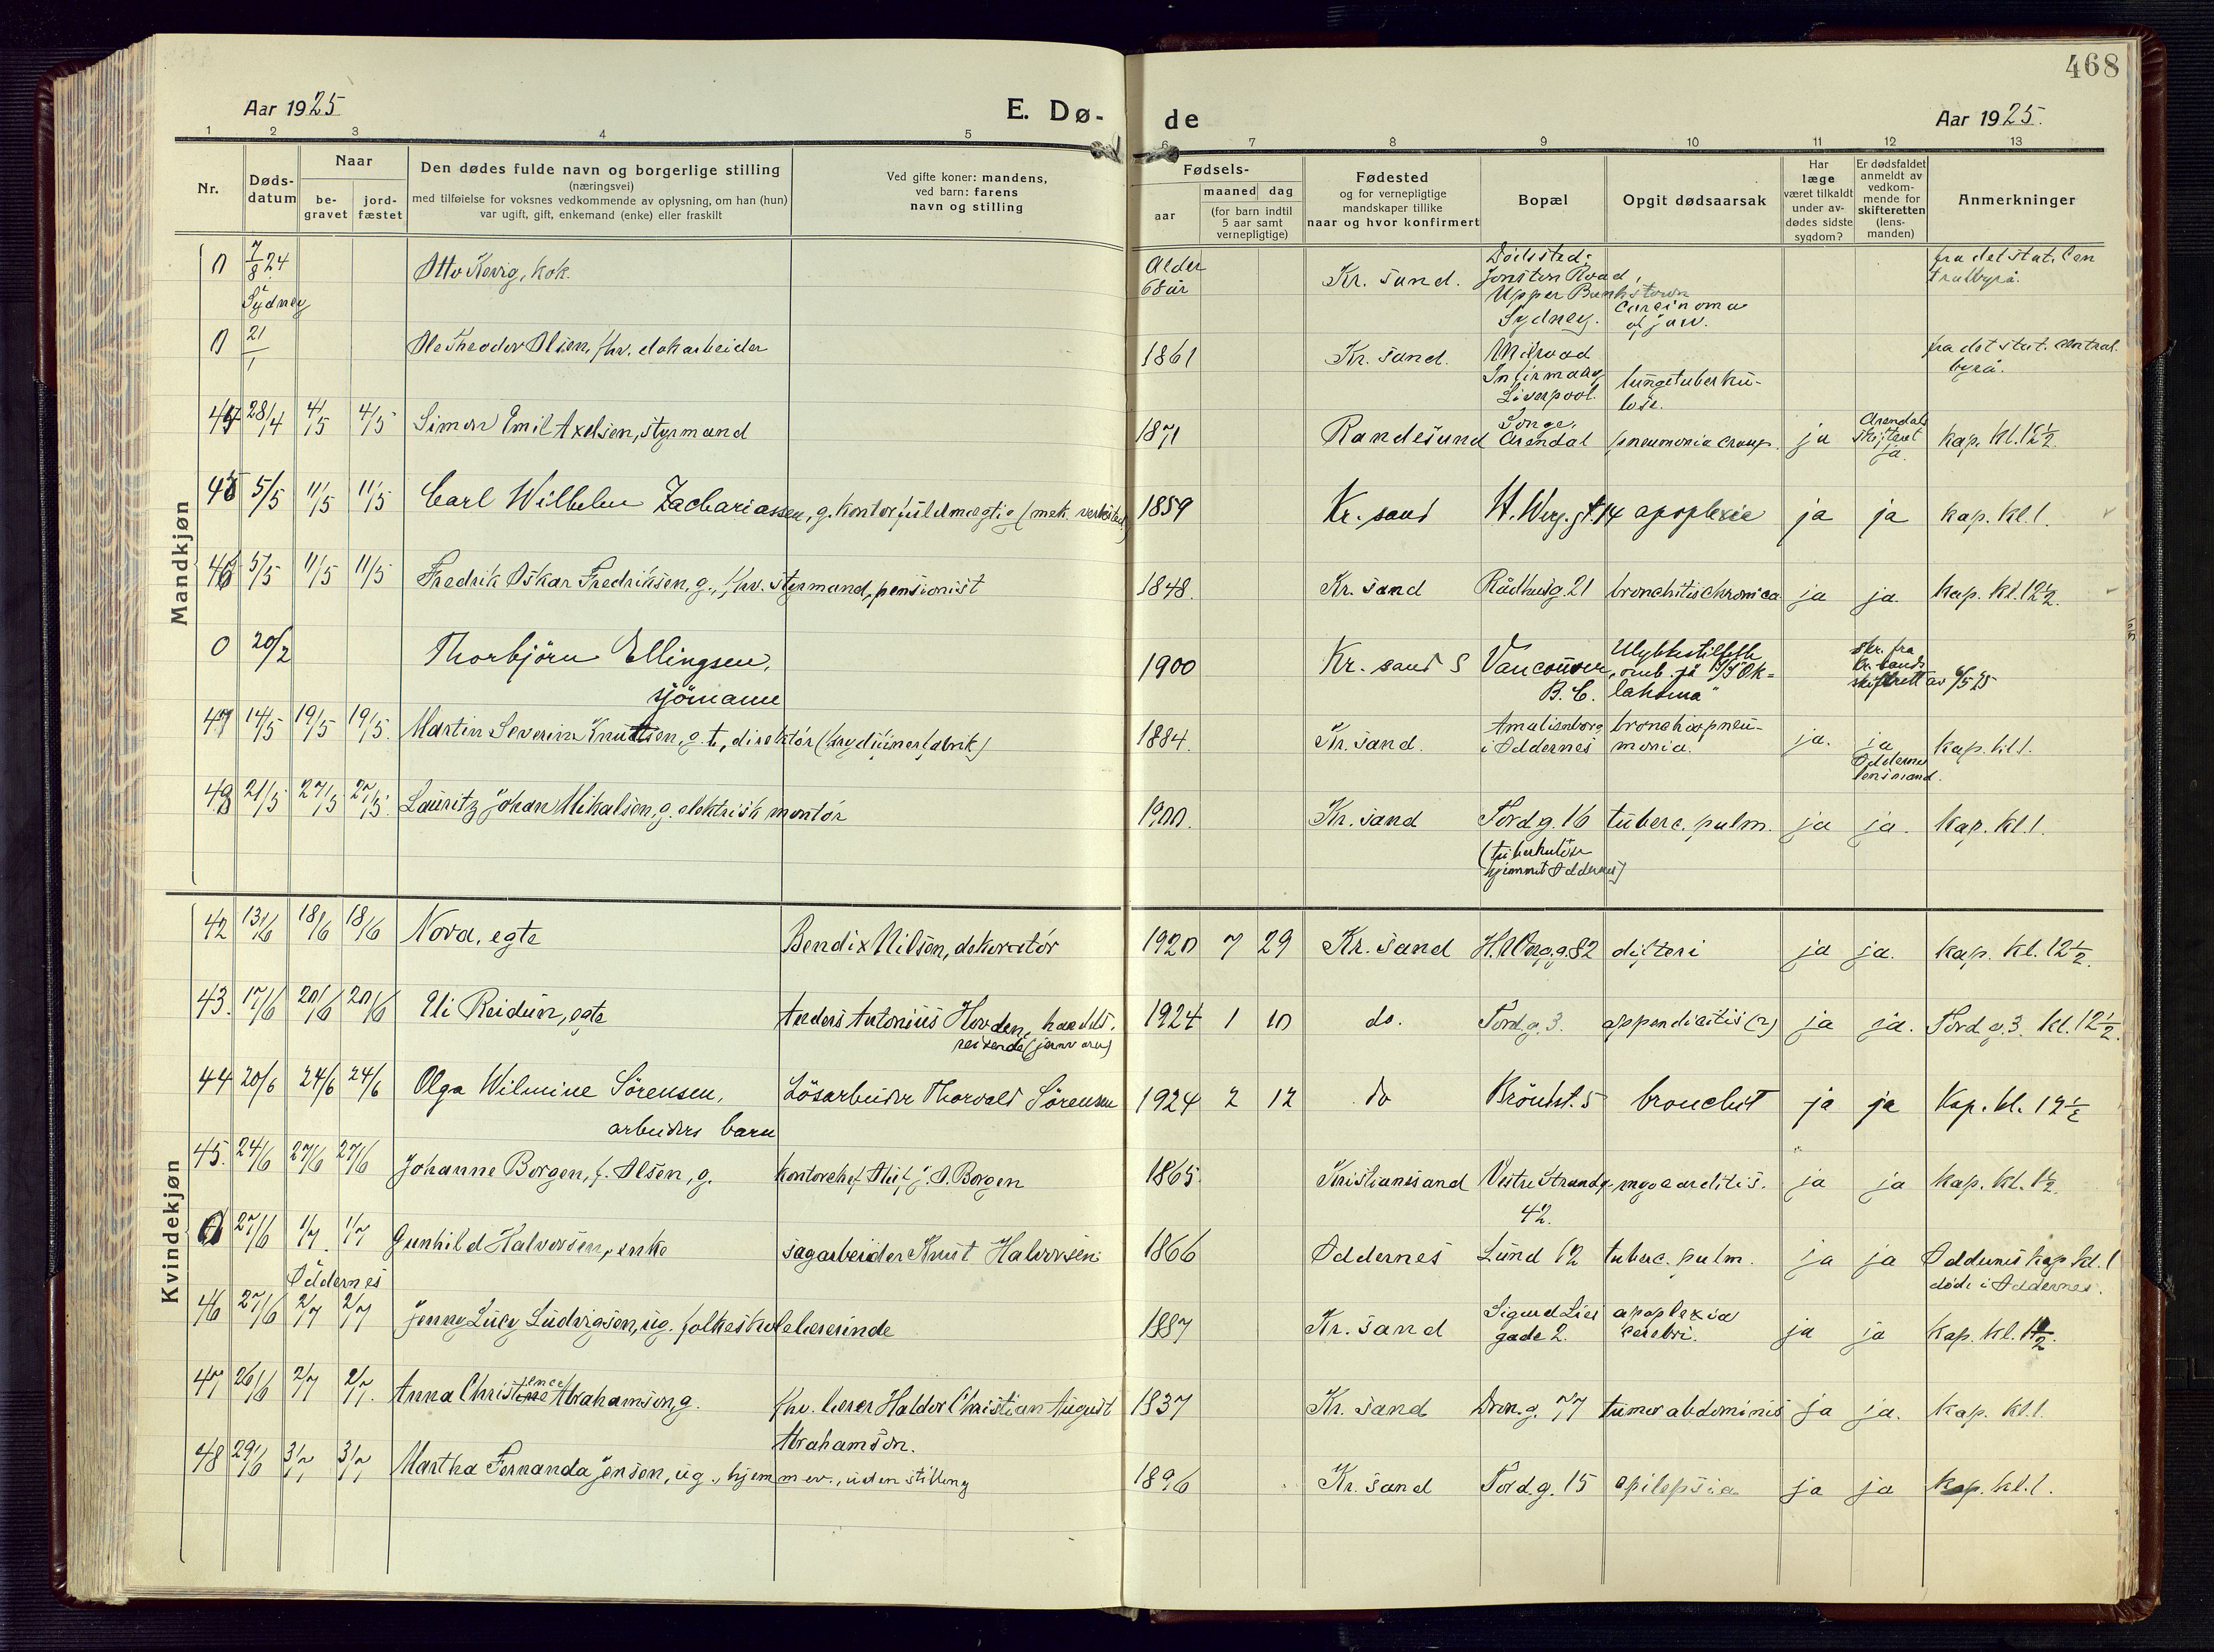 468
Aar 1925
E. Dø-
de
Aar 1925.
1 2 3 4 5 6 7 8 9 10 11 12 13
Nr.
Døds-
datum
Naar
be-
gravet
jord-
fæstet
Den dødes fulde navn og borgerlige stilling
(næringsvei)
med tilføielse for voksnes vedkommende av oplysning, om han (hun)
var ugift, gift, enkemand (enke) eller fraskilt
Ved gifte koner: mandens,
ved barn: farens
navn og stilling
Fødsels-
aar
maaned dag
(for barn indtil
5 aar samt
vernepligtige)
Fødested
og for vernepligtige
mandskaper tillike
naar og hvor konfirmert
Bopæl
Opgit dødsaarsak
Har
læge
været tilkaldt
under av-
dødes sidste
sygdom?
Er dødsfaldet
anmeldt av
vedkom-
mende for
skifteretten
(lens-
manden)
Anmerkninger
Mandkjøn
0 7/8 24 Otto Kevig, kok. Alder 68 år Kr. sand. Dödssted: Jonston Road, Upper Bankstown Sydney. Carcinoma of jaw. fra det stat. Cen
Sydney
tralbyrå.
0 21/1 Ole Theodor Olsen, fhv. dokarbeider 1861 Kr. sand. Milroad Infirmary Liverpool. lungetuberku-
lose. fra det stat. Central.
byrå.
44 28/4 4/5 4/5 Simon Emil Axelsen, styrmand 1871 Randesund Songe, Arendal pneumonia croup. ja Arendals skifteret ja. kap. kl. 12½.
45 5/5 11/5 11/5 Carl Wilhelm Zachariassen, g. kontorfuldmægtig (mek. verksted) 1859 Kr. sand H. Werg. gt. 14 apoplexie ja ja kap. kl. 1.
46 5/5 11/5 11/5 Fredrik Oskar Fredriksen, g., fhv. styrmand, pensionist 1848. Kr. sand Rådhusg. 21 bronchitis chronica ja ja. kap. kl. 12½.
0 20/2 Thorbjörn Ellingsen,
sjömann 1900 Kr. sand S Vancouver, B. C. Ulykkestilfelle omb. på M/S "Ok-
lahoma" skr. fra Kr. sands skifterett av 6/5 25
47 14/5 19/5 19/5. Martin Severin Knudtsen, g. t., direktör (hrydünerfabrik) 1884. Kr. sand. Amalienborg i Oddernes bronchiopneu-
monia. ja. ja Oddernes lensmand. kap. kl. 1.
48 21/5 27/5 27/5. Lauritz Johan Mikalsen, g. elektrisk montör 1900. Kr. sand Tordg. 16 tuberc. pulm. ja ja. kap. kl. 1.
(tuberkulose
hjemmet Oddernes)
Kvindekjøn
42 13/6 18/6 18/6 Nora, egte Bendix Nilsen, dekoratör 1920 7 29 Kr. sand H. Werg. g. 82 difteri ja ja. kap. kl. 12½.
43. 17/6 20/6 20/6 Eli Reidun, egte Anders Antonius Hovden, handels.
reisende (jernvarer) 1924 1 10 do. Tord. g. 3. appendicitis (?) ja ja. Tord. g. 3. kl. 12½.
44 20/6 24/6 24/6 Olga Wilmine Sörensen,
arbeiders barn Lösarbeider Thorvald Sörensen 1924 2 12 do Bröndst. 5 bronchit ja ja Kap. kl. 12½
45. 24/6 27/6 27/6 Johanne Borgen, f. Olsen, g. kontorchef Oluf J. O. Borgen 1865. Kristianssand Vestre Strandg. 42. myocarditis. ja ja kap. kl. 1½.
0 27/6 1/7. 1/7 Gunhild Halvorsen, enke sagarbeider Knut Halvorsen. 1866 Oddernes Lund 12 tuberc. pulm. ja ja Oddernes kap kl. 1
Oddernes
döde i Oddernes.
46 27/6 2/7 2/7 Jenny Lucy Ludvigsen, ug. folkeskolelærerinde 1887 Kr. sand Sigurd Lies gade 2. apoplexia cerebri. ja ja kap. kl. 1½.
47 26/6 2/7 2/7. Anna Christence Abrahamson, g. fhv. lærer Haldor Christian August
Abrahamson. 1837 Kr. sand Dron. g. 77 tumor abdominis ja ja. kap. kl. 1.
48 29/6 3/7 3/7 Martha Fernanda Jensen, ug., hjemmev., uden stilling 1896 Kr. sand Tord. g. 15 epilepsia ja ja kap. kl. 1.